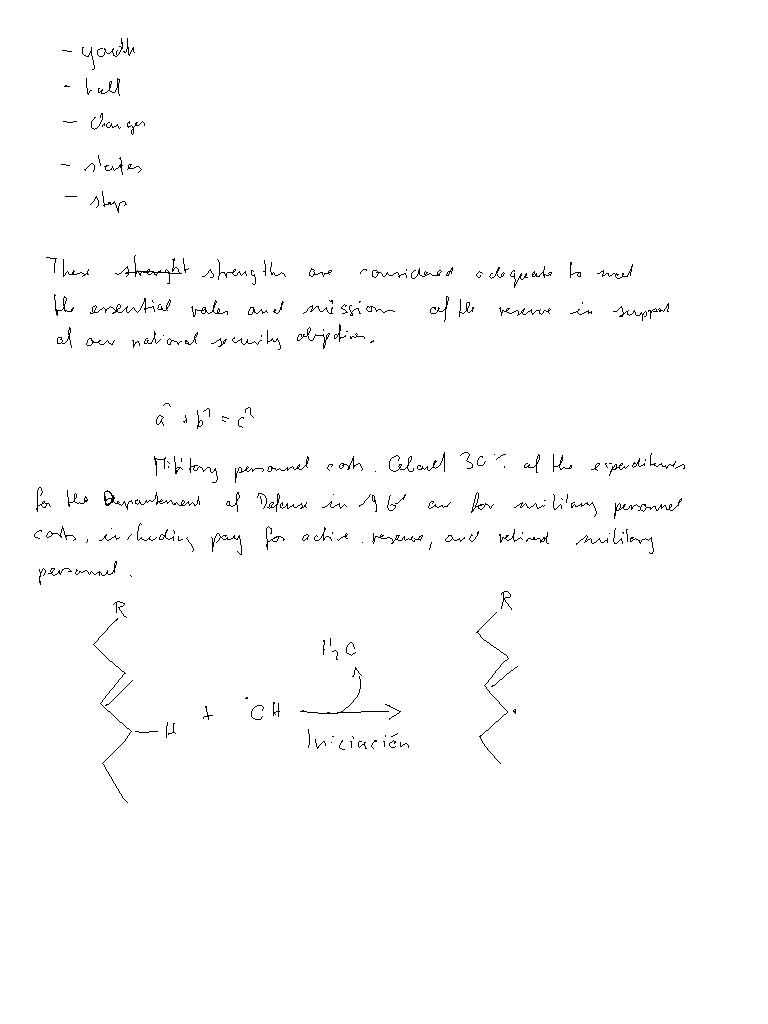 - youth
- ball
- changes
- states
- stop
These straight strengths are considered adequate to meet
the essential roles and missions of the reserve in support
of our national security objectives.
a^n + b^n = c^n
Military personnel costs. About 30% of the expenditures
for the Departement of Defense in 196 are for military personnel
costs, including pay for active, reserve, and retired military
personnel.
R
R
H₂O
H + ·OH
Iniciación